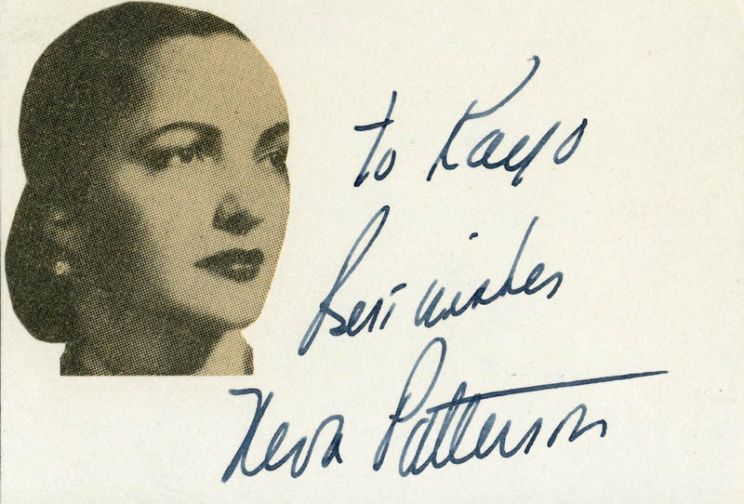 to Kayo
Best wishes
Neva Patterson